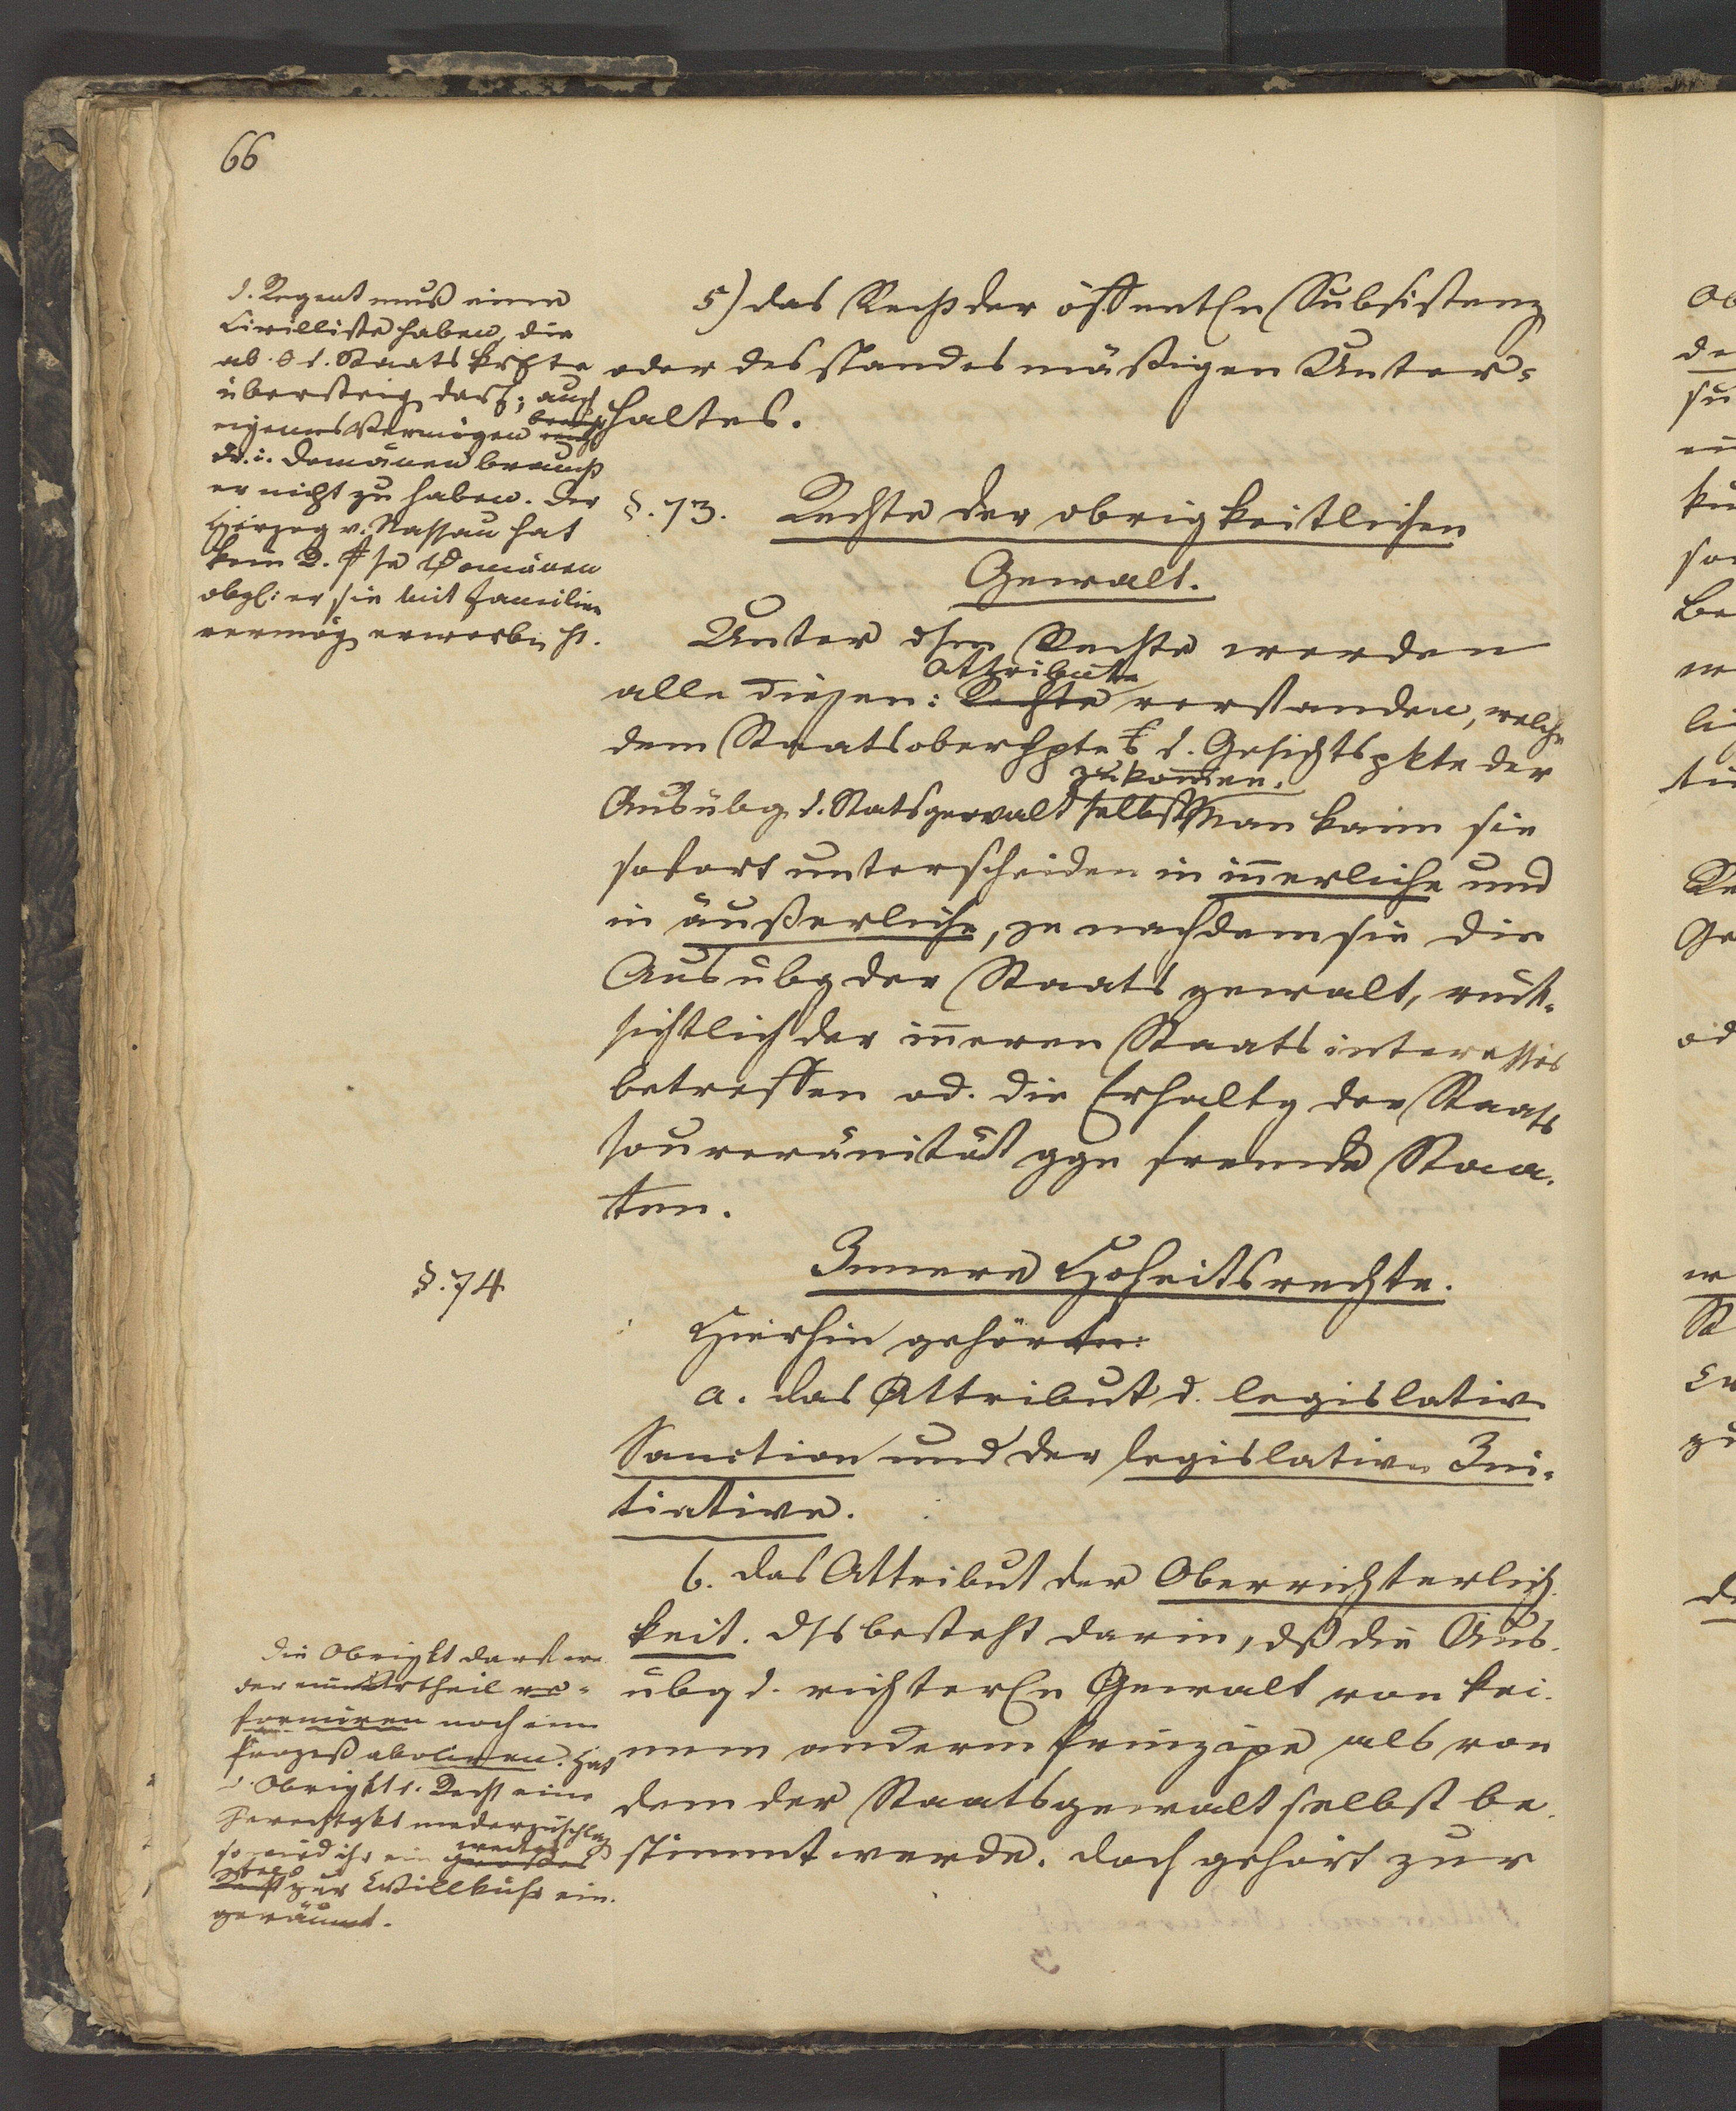 66
d. Regent muß eine
Civilliste haben, die
ab. d. Staatskrfte
übersteig. darf; auch
eigenes Vermögen
d. i. Domänen braucht
er nicht zu haben. Der
Herzog v. Nassau hat
kein Domänen
obgl: er sie mit Familien
vermög. erworben ht.
5) das Recht der öffentln Subsistenz
oder des standesmäßigen Unter=
haltes.
§. 73. Rechte der obrigkeitlichen
Gewalt.
Unter dsen Rechte werden
Attribute
alle diejen: Rechte verstanden, welche
dem Staatsoberhpte d. Gesichtspkte der
zukommen.
Ausübg d. Statsgewalt selbst Man kann sie
sofort unterscheiden in innerliche und
in äußerliche, je nachdem sie die
Ausübg der Staatsgewalt, rück=
sichtlich der inneren Staatsinteresses
betreffen od. die Erhaltg der Staats
souveränität gge fremde Staa=
ten.
§. 74
Innere Hoheitsrechte.
Hierhin gehören:
a. das Attribut d. legislativen
Sanction und der legislativen Ini=
tiative.
b. das Attribut der Oberrichterlich=
keit. Dss besteht darin, dß die Aus=
übg d. richterln Gewalt von kei=
nem anderm Prinzipe als von
dem der Staatsgewalt selbst be=
stimmt werde. Doch gehört zur
Die Obrigkt darf we
der ein Urtheil re=
formiren noch einen
Prozeß aboliren. Hat
d. Obrigkt d. Recht eine
Gerechtgkt niederzuschlag
so wird ihr ein großes
zur Willkühr ein=
geräumt.